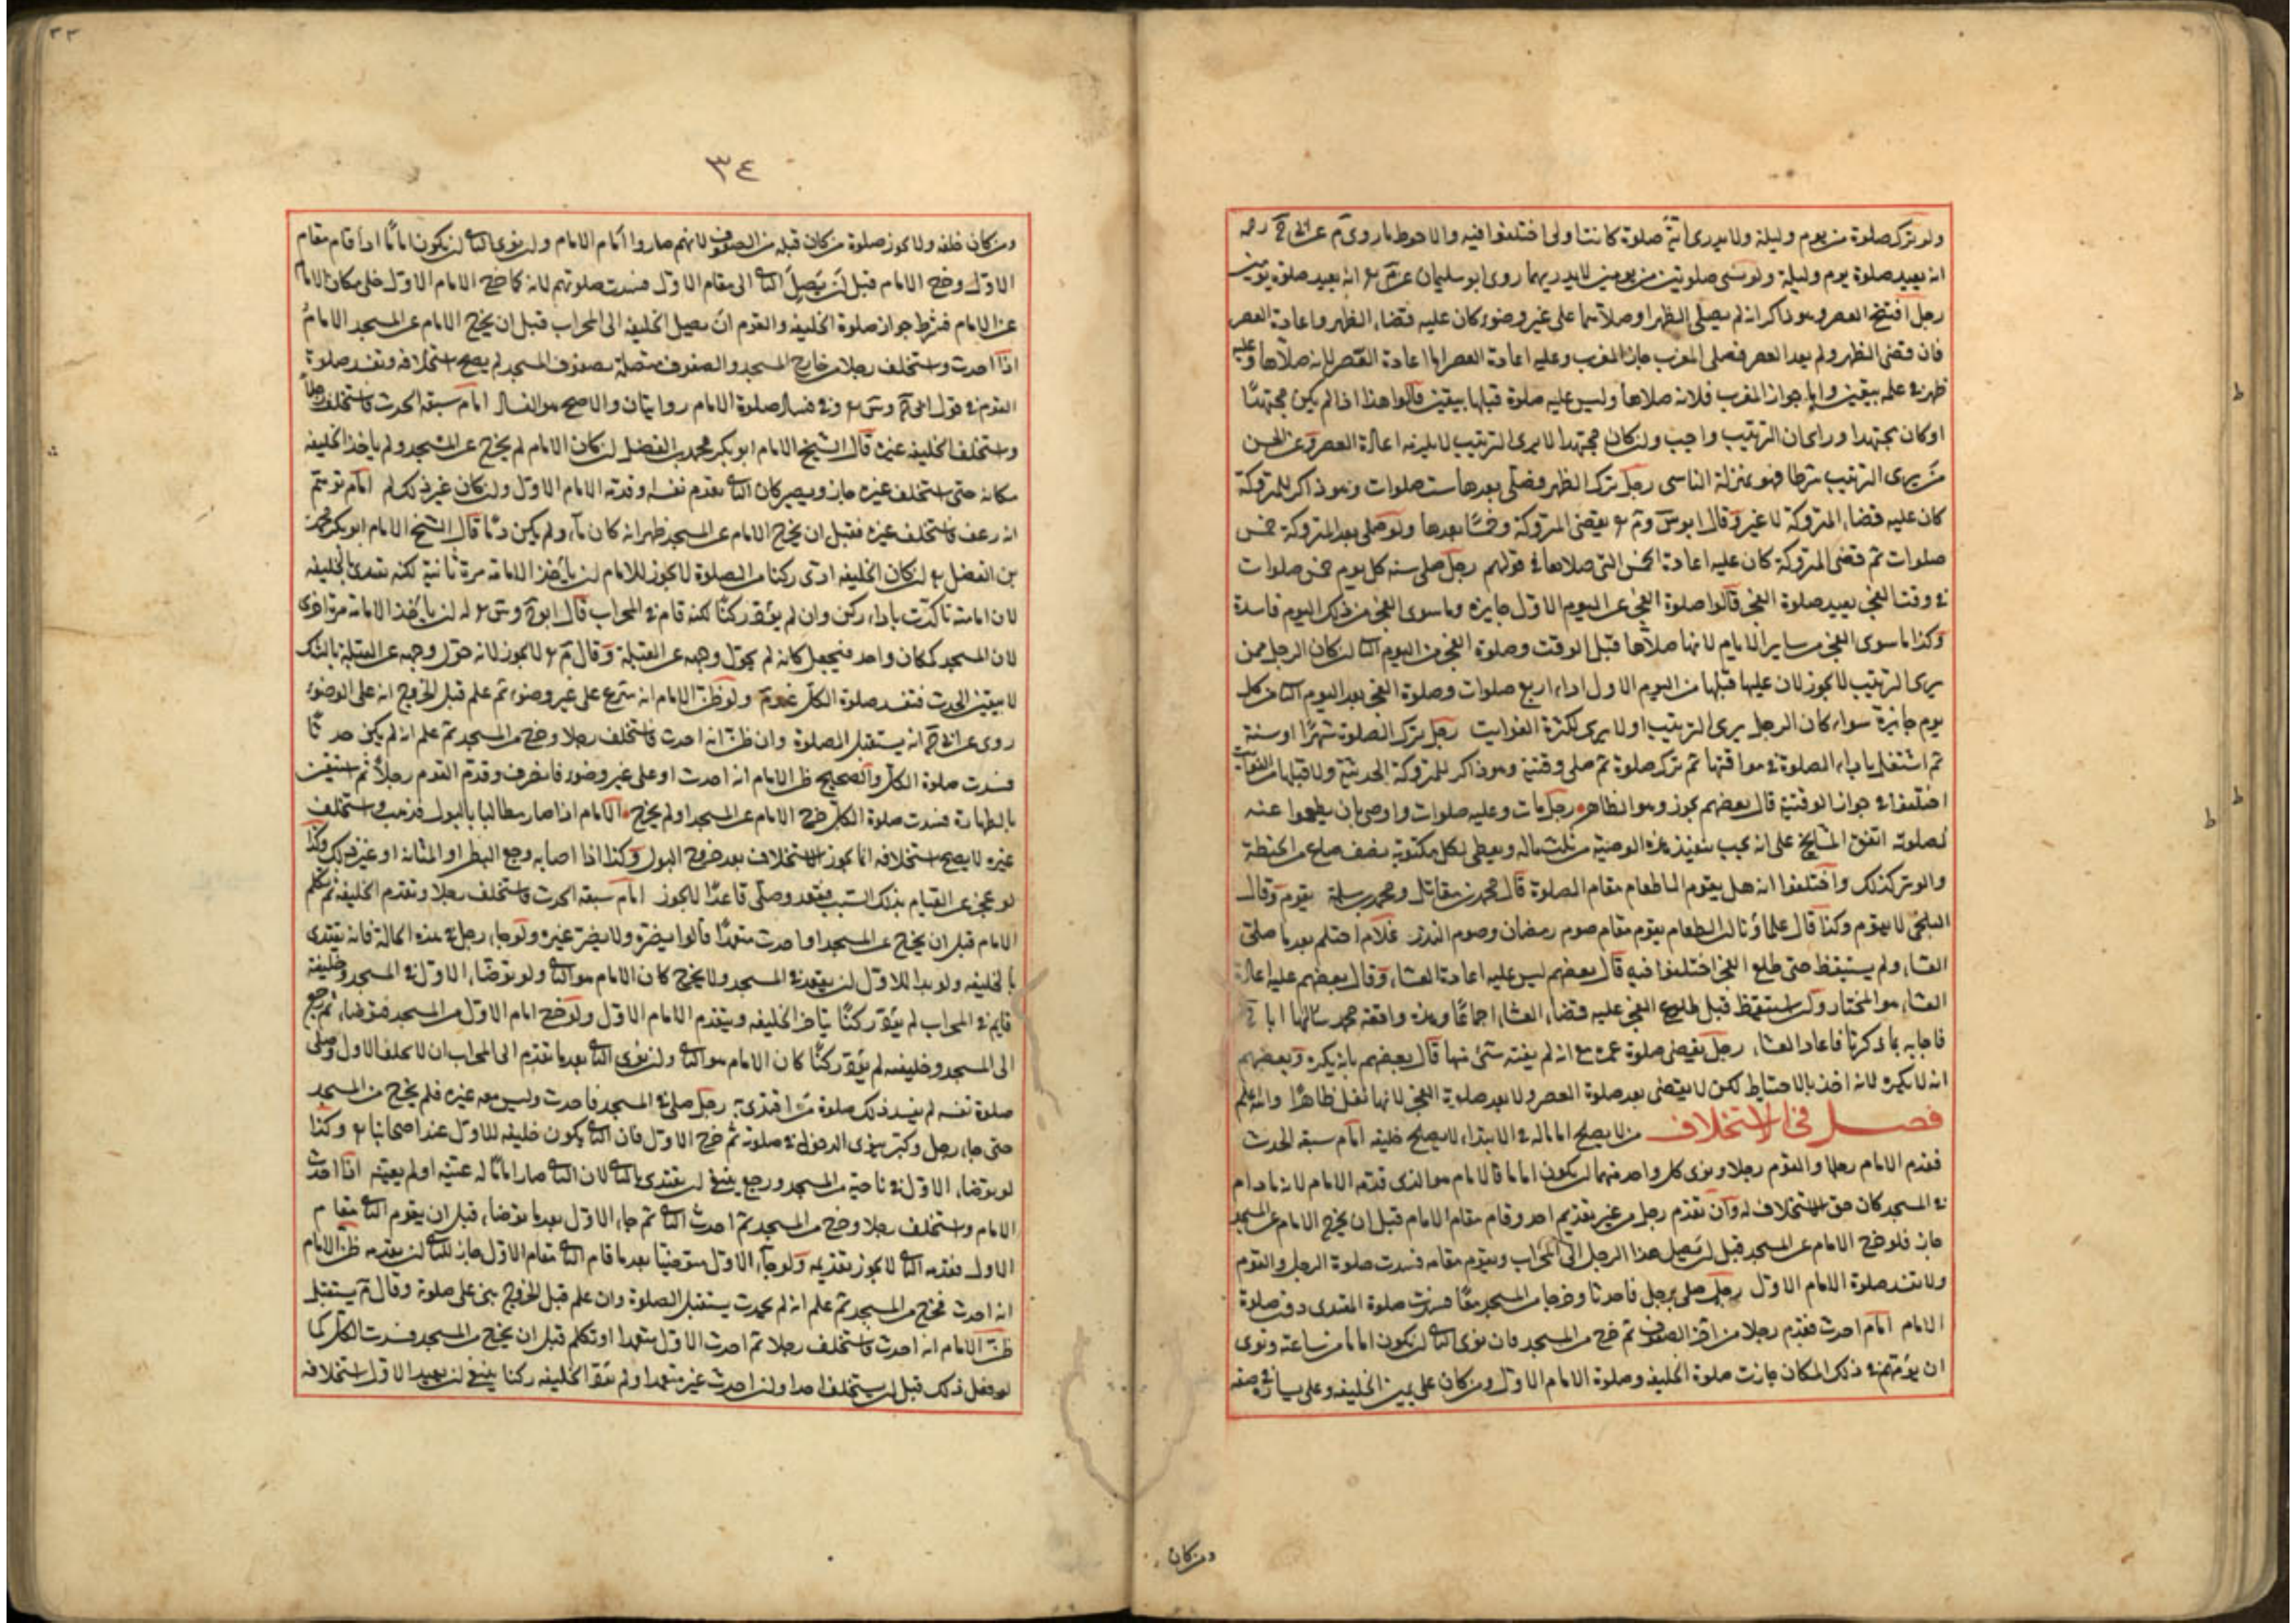 ولو ترك صلوة من يوم وليلة ولا يدرى اية صلوة كانت اولى اختلفوا فيه والاحوط ما روى عن
انه يعيد صلوة يوم وليلة ولو نسى صلوتين من يومين لا يدريهما روى ابو سليمان عن انه يعيد صلوة يومين
رجل افتتح العصر وهو ذاكر انه لم يصلى الظهر او صلاهما على غير وضوء كان عليه قضاء الظهر واعادة العصر
فان قضى الظهر ولم يعد العصر فصلى المغرب جاز المغرب وعليه اعادة العصر اما اعادة العصر لانه صلاها وعليه
ظهر فى علمه بيقين واما جواز المغرب فلانه صلاها وليس عليه صلوة قبلها بيقين قالوا هذا اذا لم يكن مجتهدا
او كان مجتهدا وراى ان الترتيب واجب وان كان مجتهدا لا يرى الترتيب لا يلزمه اعادة العصر وعن الحسن
من يرى الترتيب شرطا فهو بمنزلة الناسى رجل ترك الظهر فصلى بعدها ست صلوات وهو ذاكر للمتروكة
كان عليه قضاء المتروكة لا غير وقال يقضى المتروكة وخمسا بعدها ولو صلى بعد المتروكة خمس
صلوات ثم قضى المتروكة كان عليه اعادة الخمس التى صلاها فى قولهم رجل صلى سنة كل يوم خمس صلوات
فى وقت الفجر يعيد صلوة الفجر قالوا صلوة الفجر عن اليوم الاول جايزة وما سوى الفجر من ذلك اليوم فاسدة
وكذا ما سوى الفجر من ساير الايام لانها صلاها قبل الوقت وصلوة الفجر من اليوم الثانى ان كان الرجل ممن
يرى الترتيب لا يجوز لان عليها قبلها من اليوم الاول اداء اربع صلوات وصلوة الفجر بعد اليوم الثانى من كل
يوم جايزة سواء كان الرجل يرى الترتيب او لا يرى لكثرة الفوايت رجل ترك الصلوة شهرا او سنة
ثم اشتغل باداء الصلوة فى مواقتها ثم ترك صلوة ثم صلى وقتية وهو ذاكر للمتروكة الحديثة ولما قبلها من الفوايت
اختلفوا فى جواز الوقتية قال بعضهم يجوز وهو الظاهر رجل مات وعليه صلوات واوصى بان يطعموا عنه
لصلوته اتفق المشايخ على انه يجب تنفيذ هذه الوصية من ثلث ماله ويعطى لكل مكتوبة نصف صاع من الحنطة
والوتر كذلك واختلفوا انه هل يقوم الاطعام مقام الصلوة قال محمد بن مقاتل ومحمد بن سلمة يقوم وقال
البلخى لا يقوم وكذا قال علماؤنا ان الطعام يقوم مقام صوم رمضان وصوم النذر غلام احتلم بعد ما صلى
العشاء ولم يستيقظ حتى طلع الفجر اختلفوا فيه قال بعضهم ليس عليه اعادة العشاء وقال بعضهم عليه اعادة
العشاء هو المختار وان استيقظ قبل طلوع الفجر عليه قضاء العشاء اجماعا وهذه واقعة محمد سالها ابا
فاجابه بما ذكرنا فاعاد العشاء رجل يقضى صلوة عمره مع انه لم يفته شئ منها قال بعضهم بانه يكره وبعضهم
انه لا يكره لانه اخذ بالاحتياط لكن لا يقضى بعد صلوة العصر ولا بعد صلوة الفجر لانها نفل ظاهرا والله اعلم
فصل فى الاستخلاف من لا يصلح اماما له فى الابتداء لا يصلح خليفة امام سبقه الحدث
فقدم الامام رجلا والقوم رجلا ونوى كل واحد منهما ان يكون اماما فالامام هو الذى قدمه الامام لانه ما دام
فى المسجد كان حق الاستخلاف له وان تقدم رجل من غير تقديم احد وقام مقام الامام قبل ان يخرج الامام عن المسجد
جاز فلو خرج الامام عن المسجد قبل ان يصل هذا الرجل الى المحراب ويقوم مقامه فسدت صلوة الرجل والقوم
ولا تفسد صلوة الامام الاول رجل صلى برجل فاحدثا وخرجا من المسجد معا فسدت صلوة المقتدى دون صلوة
الامام امام احدث فقدم رجلا من اخر الصفوف ثم خرج من المسجد فان نوى الثانى ان يكون اماما من ساعته ونوى
ان يؤمهم فى ذلك المكان جازت صلوة الخليفة وصلوة الامام الاول ومن كان على يمين الخليفة وعلى يساره فى صفه
ومن كان
٣٣
٣٤
ومن كان خلفه ولا يجوز صلوة من كان قبله من الصفوف لانهم صاروا امام الامام وان نوى الثانى ان يكون اماما اذا قام مقام
الاول وخرج الامام قبل ان يصل الثانى الى مقام الاول فسدت صلوتهم لانه كما خرج الامام الاول خلى مكان الامام
عن الامام فشرط جواز صلوة الخليفة والقوم ان يصل الخليفة الى المحراب قبل ان يخرج الامام عن المسجد الامام
اذا احدث واستخلف رجلا من خارج المسجد والصفوف متصلة بصفوف المسجد لم يصح استخلافه وتفسد صلوة
القوم فى قول وفى فساد صلوة الامام روايتان والاصح هو الفساد امام سبقه الحدث فاستخلف رجلا
واستخلف الخليفة غيره قال الشيخ الامام ابو بكر محمد بن الفضل ان كان الامام لم يخرج عن المسجد ولم ياخذ الخليفة
مكانه حتى استخلف غيره جاز ويصير كان الثانى تقدم نفسه او قدمه الامام الاول وان كان غير ذلك لم امام توهم
انه رعف فاستخلف غيره فقبل ان يخرج الامام عن المسجد ظهر انه كان ماء ولم يكن دما قال الشيخ الامام ابو بكر محمد
بن الفضل ان كان الخليفة ادى ركنا من الصلوة لا يجوز للامام ان ياخذ الامامة مرة ثانية لكنه يقتدى بالخليفة
لان امامته تاكدت باداء ركن وان لم يؤد ركنا لكنه قام فى المحراب قال له ان ياخذ الامامة مرة اخرى
لان المسجد كمكان واحد فيجعل كانه لم يحول وجهه عن القبلة وقال لا يجوز لانه حول وجهه عن القبلة بالشك
لا بيقين الحدث فتفسد صلوة الكل ولو ظن الامام انه شرع على غير وضوء ثم علم قبل الخروج انه على الوضوء
روى عن انه يستقبل الصلوة وان ظن انه احدث فاستخلف رجلا وخرج من المسجد ثم علم انه لم يكن حدثا
فسدت صلوة الكل والصحيح ظن الامام انه احدث او على غير وضوء فانصرف وقدم القوم رجلا ثم استيقن
بالطهارة فسدت صلوة الكل خرج الامام عن المسجد او لم يخرج الامام اذا صار مطالبا بالبول فذهب واستخلف
غيره لا يصح استخلافه انما يجوز الاستخلاف بعد خروج البول وكذا اذا اصابه وجع البطن او المثانة او غير ذلك وكذا
لو عجز عن القيام بذلك السبب فقعد وصلى قاعدا لا يجوز امام سبقه الحدث فاستخلف رجلا وتقدم الخليفة ثم تكلم
الامام قبل ان يخرج عن المسجد او احدث متعمدا قالوا يضره ولا يضر غيره ولو جاء رجل فى هذه الحالة فانه يقتدى
بالخليفة ولو بدا للاول ان يقعد فى المسجد ولا يخرج كان الامام هو الثانى ولو توضا الاول فى المسجد وخليفته
قايم فى المحراب لم يؤد ركنا يتاخر الخليفة ويتقدم الامام الاول ولو خرج امام الاول من المسجد فتوضا ثم رجع
الى المسجد وخليفته لم يؤد ركنا كان الامام هو الثانى وان نوى الثانى بعد ما تقدم الى المحراب ان لا يخلف الاول وصلى
صلوة نفسه لم يفسد ذلك صلوة من اقتدى به رجل صلى فى المسجد فاحدث وليس معه غيره فلم يخرج من المسجد
حتى جاء رجل وكبر ينوى الدخول فى صلوته ثم خرج الاول فان الثانى يكون خليفة للاول عند اصحابنا وكذا
لو توضا الاول فى ناحية من المسجد ورجع ينبغى ان يقتدى بالثانى لان الثانى صار اماما له عينه او لم يعينه اذا احدث
الامام واستخلف رجلا وخرج من المسجد ثم احدث الثانى ثم جاء الاول بعد ما توضا قبل ان يقوم الثانى مقام
الاول فقدمه الثانى لا يجوز تقديمه ولو جاء الاول متوضيا بعد ما قام الثانى مقام الاول جاز للثانى ان يقدمه ظن الامام
انه احدث فخرج من المسجد ثم علم انه لم يحدث يستقبل الصلوة وان علم قبل الخروج بنى على صلوة وقال يستقبل
ظن الامام انه احدث فاستخلف رجلا ثم احدث الاول متعمدا او تكلم قبل ان يخرج من المسجد فسدت الكل كما
لو فعل ذلك قبل ان يستخلف احدا وان احدث غير متعمدا ولم يؤد الخليفة ركنا ينبغى ان يعيد الاول استخلافه